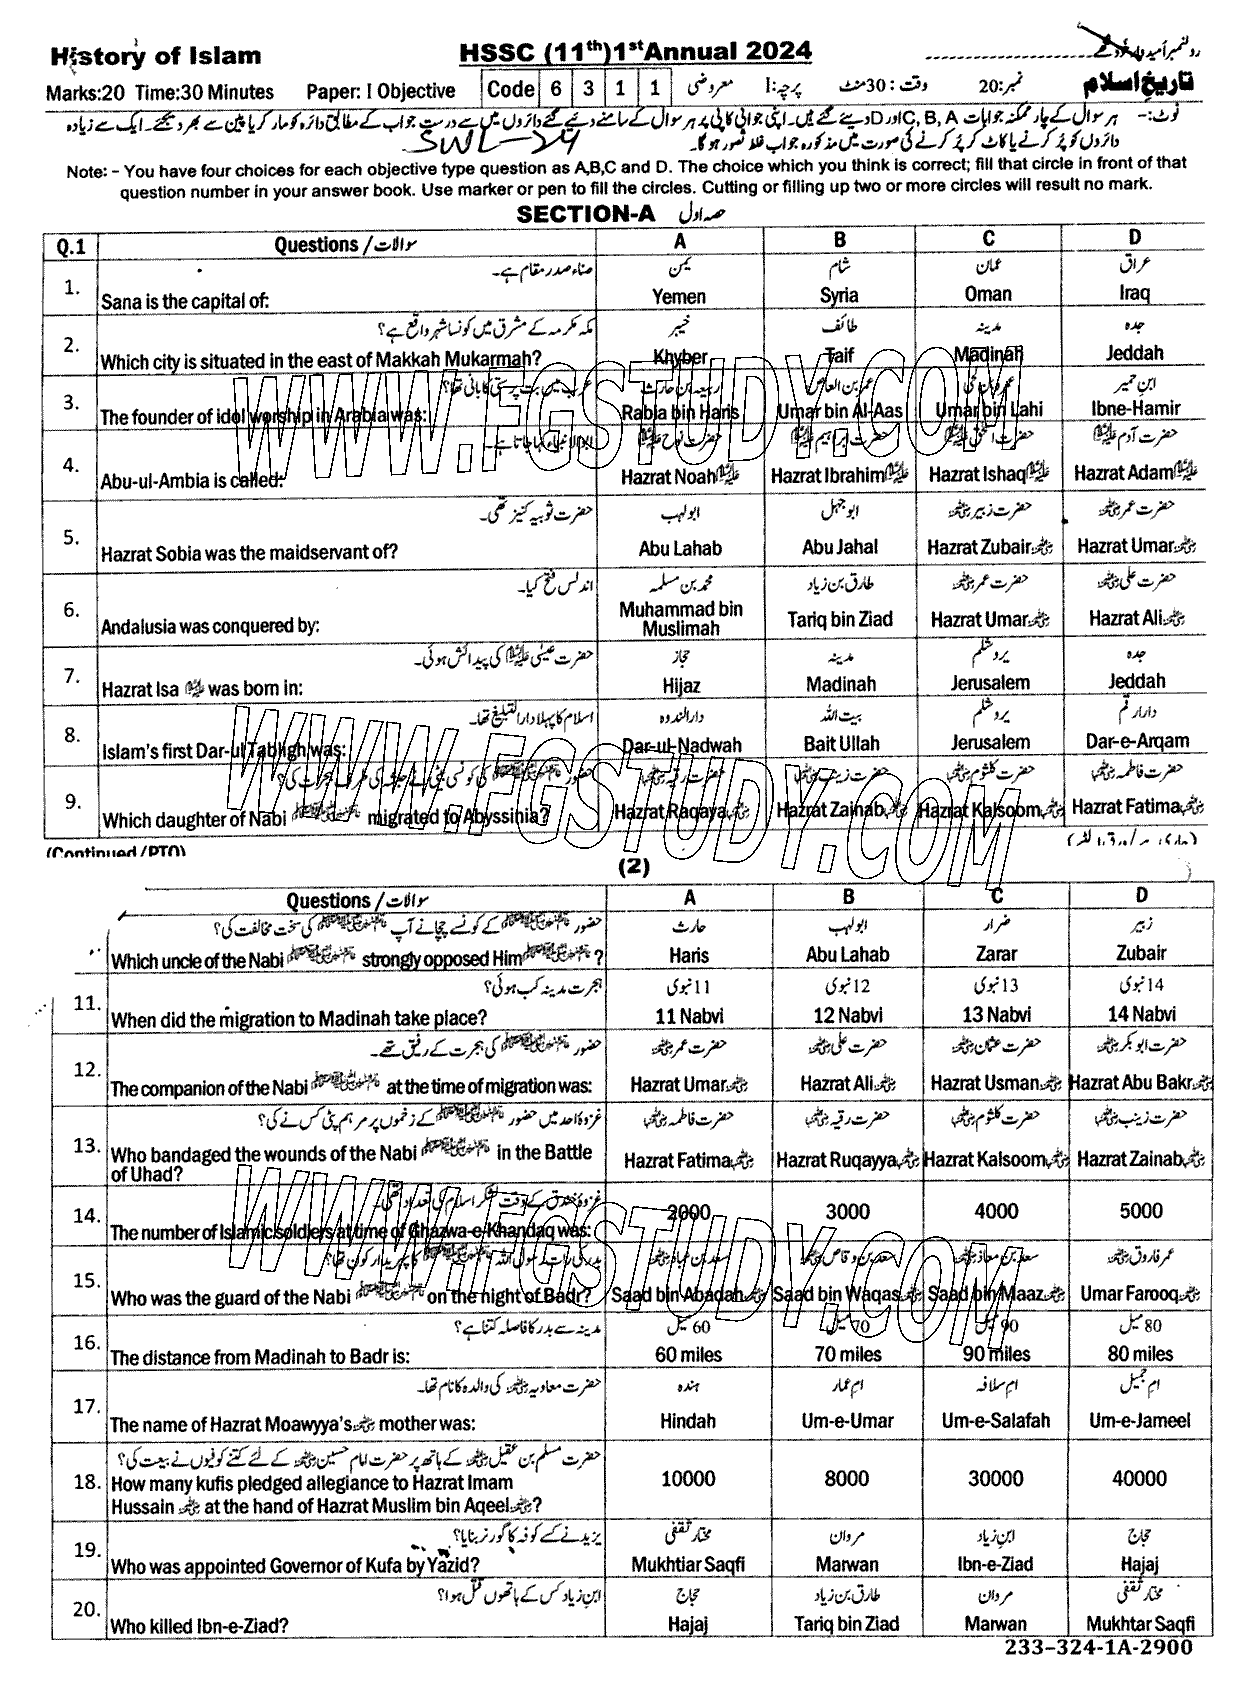 History of Islam
HSSC (11th) 1st Annual 2024
Marks:20 Time:30 Minutes Paper: I Objective Code 6 3 1 1 معروضی پرچہ: I وقت: 30 منٹ نمبر: 20 تاریخ اسلام
نوٹ:- ہر سوال کے چار ممکنہ جوابات A، B، C اور D دیئے گئے ہیں۔ اپنی جوابی کاپی پر ہر سوال کے سامنے دیئے گئے دائروں میں سے درست جواب کے مطابق دائرہ کو مارکر یا پین سے بھر دیجئے۔ ایک سے زیادہ
دائروں کو پُر کرنے یا کاٹ کر پُر کرنے کی صورت میں مذکورہ جواب غلط تصور ہوگا۔
SWL-24
Note: - You have four choices for each objective type question as A,B,C and D. The choice which you think is correct; fill that circle in front of that
question number in your answer book. Use marker or pen to fill the circles. Cutting or filling up two or more circles will result no mark.
SECTION-A حصہ اول
Q.1 Questions / سوالات A B C D
صنعاء صدر مقام ہے۔ یمن شام عمان عراق
1. Sana is the capital of: Yemen Syria Oman Iraq
مکہ مکرمہ کے مشرق میں کونسا شہر واقع ہے؟ خیبر طائف مدینہ جدہ
2. Which city is situated in the east of Makkah Mukarmah? Khyber Taif Madinah Jeddah
عرب میں بت پرستی کا بانی تھا؟ ربیعہ بن حارث عمر بن العاص عمرو بن لحی ابن حمیر
3. The founder of idol worship in Arabia was: Rabia bin Haris Umar bin Al-Aas Umar bin Lahi Ibne-Hamir
ابوالانبیاء کہا جاتا ہے۔ حضرت نوح علیہ السلام حضرت ابراہیم علیہ السلام حضرت اسحٰق علیہ السلام حضرت آدم علیہ السلام
4. Abu-ul-Ambia is called: Hazrat Noah علیہ السلام Hazrat Ibrahim علیہ السلام Hazrat Ishaq علیہ السلام Hazrat Adam علیہ السلام
حضرت ثوبیہ کنیز تھی۔ ابو لہب ابو جہل حضرت زبیر حضرت عمر
5. Hazrat Sobia was the maidservant of? Abu Lahab Abu Jahal Hazrat Zubair Hazrat Umar
اندلس فتح کیا۔ محمد بن مسلمہ طارق بن زیاد حضرت عمر حضرت علی
6. Andalusia was conquered by: Muhammad bin Muslimah Tariq bin Ziad Hazrat Umar Hazrat Ali
حضرت عیسٰی علیہ السلام کی پیدائش ہوئی۔ حجاز مدینہ یروشلم جدہ
7. Hazrat Isa علیہ السلام was born in: Hijaz Madinah Jerusalem Jeddah
اسلام کا پہلا دارالتبلیغ تھا۔ دارالندوہ بیت اللہ یروشلم دارارقم
8. Islam's first Dar-ul Tabligh was: Dar-ul-Nadwah Bait Ullah Jerusalem Dar-e-Arqam
حضور کی کونسی بیٹی نے حبشہ کی طرف ہجرت کی؟ حضرت رقیہ حضرت زینب حضرت کلثوم حضرت فاطمہ
9. Which daughter of Nabi migrated to Abyssinia? Hazrat Raqaya Hazrat Zainab Hazrat Kalsoom Hazrat Fatima
(Continued /PTO)
(2)
Questions / سوالات A B C D
حضور کے کونسے چچا نے آپ کی سخت مخالفت کی؟ حارث ابو لہب ضرار زبیر
Which uncle of the Nabi strongly opposed Him ? Haris Abu Lahab Zarar Zubair
ہجرت مدینہ کب ہوئی؟ 11 نبوی 12 نبوی 13 نبوی 14 نبوی
11. When did the migration to Madinah take place? 11 Nabvi 12 Nabvi 13 Nabvi 14 Nabvi
حضور کی ہجرت کے رفیق تھے۔ حضرت عمر حضرت علی حضرت عثمان حضرت ابو بکر
12. The companion of the Nabi at the time of migration was: Hazrat Umar Hazrat Ali Hazrat Usman Hazrat Abu Bakr
غزوہ احد میں حضور کے زخموں پر مرہم پٹی کس نے کی؟ حضرت فاطمہ حضرت رقیہ حضرت کلثوم حضرت زینب
13. Who bandaged the wounds of the Nabi in the Battle
of Uhad? Hazrat Fatima Hazrat Ruqayya Hazrat Kalsoom Hazrat Zainab
غزوہ خندق کے وقت لشکر اسلام کی تعداد تھی۔
14. The number of Islamic soldiers at time of Ghazwa-e-Khandaq was: 2000 3000 4000 5000
بدر کی رات رسول اللہ کا پہریدار کون تھا؟ سعد بن عبادہ سعد بن وقاص سعد بن معاذ عمر فاروق
15. Who was the guard of the Nabi on the night of Badr? Saad bin Abadah Saad bin Waqas Saad bin Maaz Umar Farooq
مدینہ سے بدر کا فاصلہ کتنا ہے؟ 60 میل 70 میل 90 میل 80 میل
16. The distance from Madinah to Badr is: 60 miles 70 miles 90 miles 80 miles
حضرت معاویہ کی والدہ کا نام تھا۔ ہندہ ام عمار ام سلافہ ام جمیل
17. The name of Hazrat Moawyya's mother was: Hindah Um-e-Umar Um-e-Salafah Um-e-Jameel
حضرت مسلم بن عقیل کے ہاتھ پر حضرت امام حسین کے لئے کتنے کوفیوں نے بیعت کی؟
18. How many kufis pledged allegiance to Hazrat Imam
Hussain at the hand of Hazrat Muslim bin Aqeel ? 10000 8000 30000 40000
یزید نے کسے کوفہ کا گورنر بنایا؟ مختار ثقفی مروان ابن زیاد حجاج
19. Who was appointed Governor of Kufa by Yazid? Mukhtiar Saqfi Marwan Ibn-e-Ziad Hajaj
ابن زیاد کس کے ہاتھوں قتل ہوا؟ حجاج طارق بن زیاد مروان مختار ثقفی
20. Who killed Ibn-e-Ziad? Hajaj Tariq bin Ziad Marwan Mukhtar Saqfi
233-324-1A-2900
WWW.FGSTUDY.COM
WWW.FGSTUDY.COM
WWW.FGSTUDY.COM